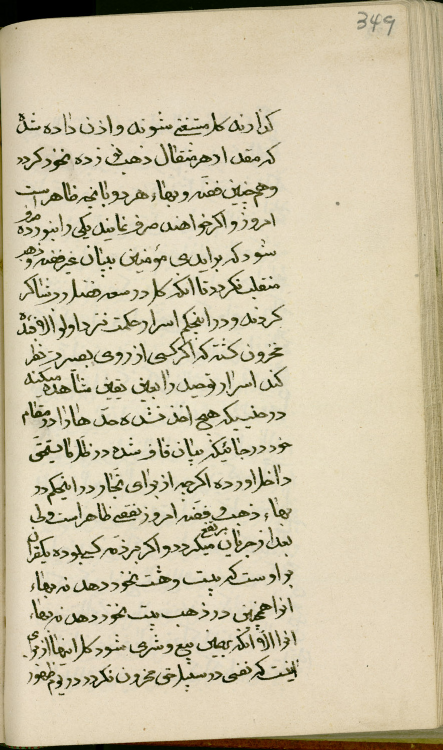 349
کذارند کل مستغنی شوند و اذن داده شده
که مقدار هر مثقال ذهب زده نخود کردد
و همچنین فضه و بهاء هر دو بانچه ظاهر است
امروز و اگر خواهند صرف نمایند یکی را نبوده
شود که برایدی مؤمنین ببیان غیر فضه و ذهب
منقلب نکردد تا انکه کل در سعه فضل او شاکر
کردند و در این حکم اسرار حکمت
مخزون کشته که اگر کسی از روی بصیرت نظر
کند اسرار توحید را بعین یقین مشاهده میکند
در حینیکه هیچ اخذ نشده حد هذا را در مقام
خود در جائیکه بیان قاف شده در ظل
داخل اورده اگر چه از برای تجار در این حکم در
بهاء ذهب و فضه امروز نقصی ظاهر است ولی
بعد از جریان مرتفع میکردد و اگر بر ذمه کسی بوده یکقران
بر اوست که بیست و هشت نخود دهد نه بهاء
انرا همچنین در ذهب بیست نخود دهد نه بهاء
انرا الا انکه بهمین بیع و شری شود کل اینها از برای
اینست که نفسی در سبیل حق محزون نکردد در یوم ظهور